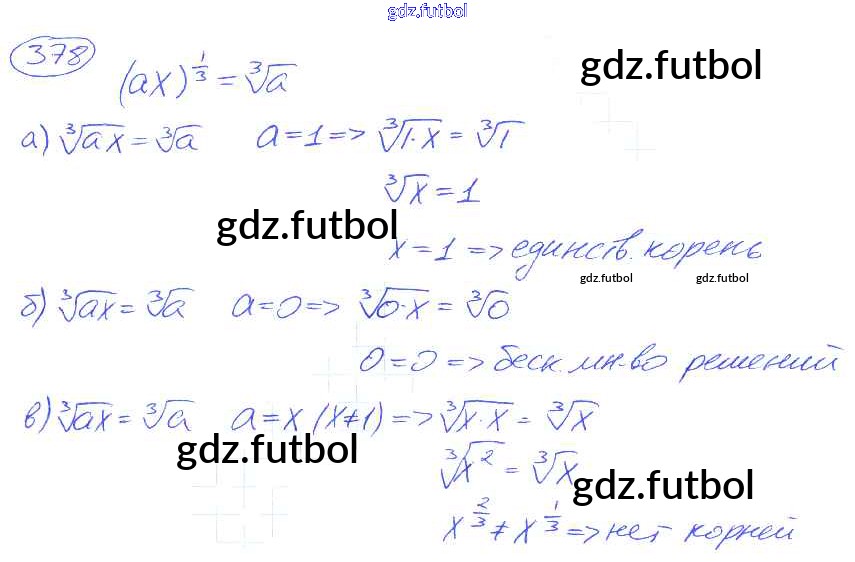 gdz.futbol
378
(ax)^{1/3} = ∛a
gdz.futbol
а) ∛ax = ∛a   a = 1 => ∛1·x = ∛1
∛x = 1
gdz.futbol
x = 1 => единств. корень
gdz.futbol gdz.futbol
б) ∛ax = ∛a   a = 0 => ∛0·x = ∛0
0 = 0 => беск. мн-во решений
в) ∛ax = ∛a   a = x (x ≠ 1) => ∛x·x = ∛x
gdz.futbol
∛x² = ∛x
gdz.futbol
x^{2/3} ≠ x^{1/3} => нет корней